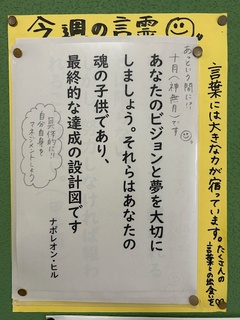 今週の言霊
あっという間に!!
十月(神無月)です
言葉には大きな力が宿っています。たくさんの
言葉との出会いを
あなたのビジョンと夢を大切に
しましょう。それらはあなたの
魂の子供であり、
最終的な達成の設計図です
ナポレオン・ヒル
具体的に!!
自分自身を
マネジメントしよう